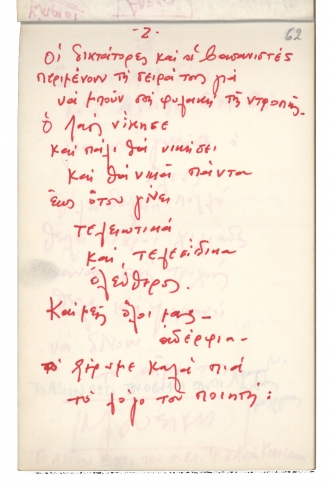 - 2 -
62
Οἱ δικτάτορες καὶ οἱ βασανιστές
περιμένουν τὴ σειρά τους γιὰ
νὰ μποῦν στὴ φυλακὴ τῆς ντροπῆς.
Ὁ λαὸς νίκησε
καὶ πάλι θὰ νικήσει
καὶ θὰ νικᾶ πάντα
ἕως ὅτου γίνει
τελειωτικά
καὶ τελεσίδικα
ἐλεύθερος.
Καὶ μεῖς ὅλοι μας –
ἀδέρφια –
τὸ ξέρουμε καλὰ πιά
τὸ λόγο τοῦ ποιητῆ: